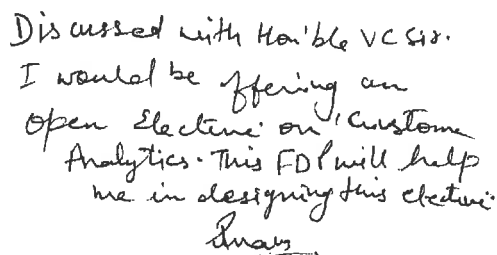 Discussed with Hon'ble VC Sir.
I would be offering an
open Elective on 'Custome
Analytics. This FDP will help
me in designing this elective.